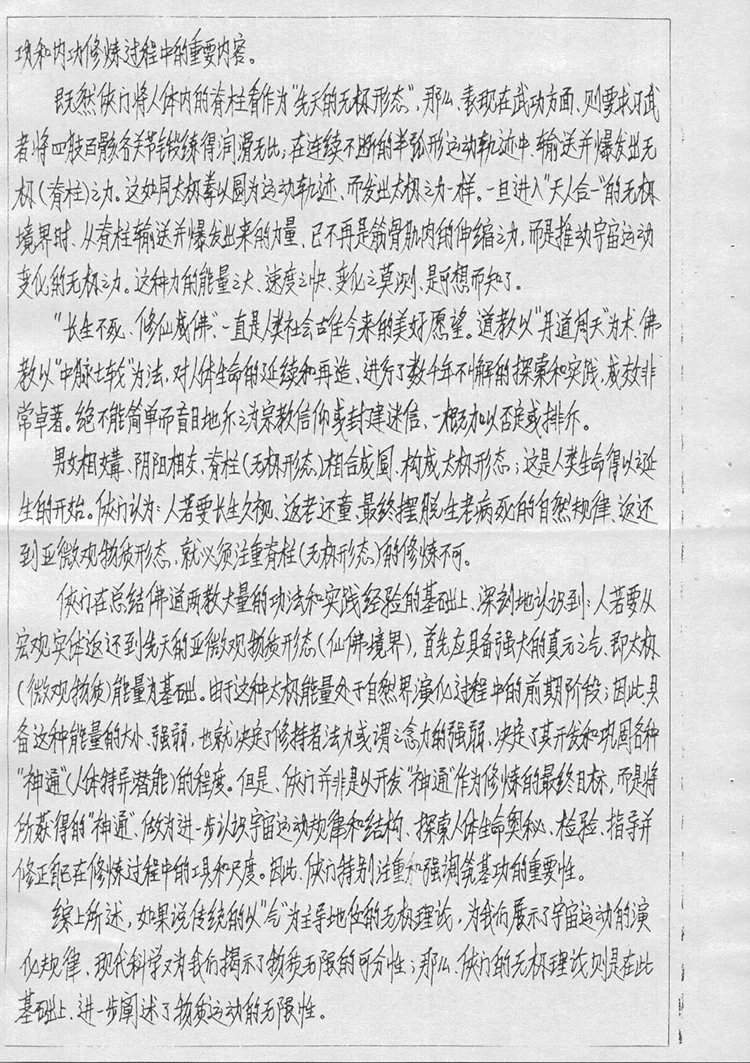 项和内功修炼过程中的重要内容。
既然侠门将人体内的脊柱看作为“先天的无极形态”，那么、表现在武功方面、则要求习武
者将四肢百骸各关节锻练得润滑无比；在连续不断的半弧形运动轨迹中、输送并爆发出无
极(脊柱)之力。这如同太极拳以圆为运动轨迹、而发出太极之力一样。一旦进入“天人合一”的无极
境界时、从脊柱输送并爆发出来的力量、已不再是筋骨肌肉的伸缩之力，而是推动宇宙运动
变化的无极之力。这种力的能量之大、速度之快、变化之莫测、是可想而知了。
“长生不死、修仙成佛”、一直是人类社会古往今来的美好愿望。道教以“丹道周天”为术、佛
教以“中脉七轮”为法，对人体生命的延续和再造、进行了数千年不懈的探索和实践，成效非
常卓著。绝不能简单而盲目地斥之为宗教信仰或封建迷信、一概加以否定或排斥。
男女相媾、阴阳相交、脊柱(无极形态)相合成圆、构成太极形态；这是人类生命得以诞
生的开始。侠门认为：人若要长生久视、返老还童、最终摆脱生老病死的自然规律、返还
到亚微观物质形态，就必须注重脊柱(无极形态)的修炼不可。
侠门在总结佛道两教大量的功法和实践经验的基础上、深刻地认识到：人若要从
宏观实体返还到先天的亚微观物质形态(仙佛境界)，首先应具备强大的真元之气、即太极
(微观物质)能量为基础。由于这种太极能量处于自然界演化过程中的前期阶段；因此、具
备这种能量的大小、强弱，也就决定了修持者法力或谓之念力的强弱、决定了其开发和巩固各种
“神通”(人体特异潜能)的程度。但是、侠门并非是以开发“神通”作为修炼的最终目标，而是将
所获得的“神通”、做为进一步认识宇宙运动规律和结构、探索人体生命奥秘、检验、指导并
修正自己在修炼过程中的工具和尺度。因此、侠门特别注重和强调筑基功的重要性。
综上所述，如果说传统的以“气”为主导地位的无极理论，为我们展示了宇宙运动的演
化规律、现代科学又为我们揭示了物质无限的可分性；那么、侠门的无极理论则是在此
基础上、进一步阐述了物质运动的无限性。